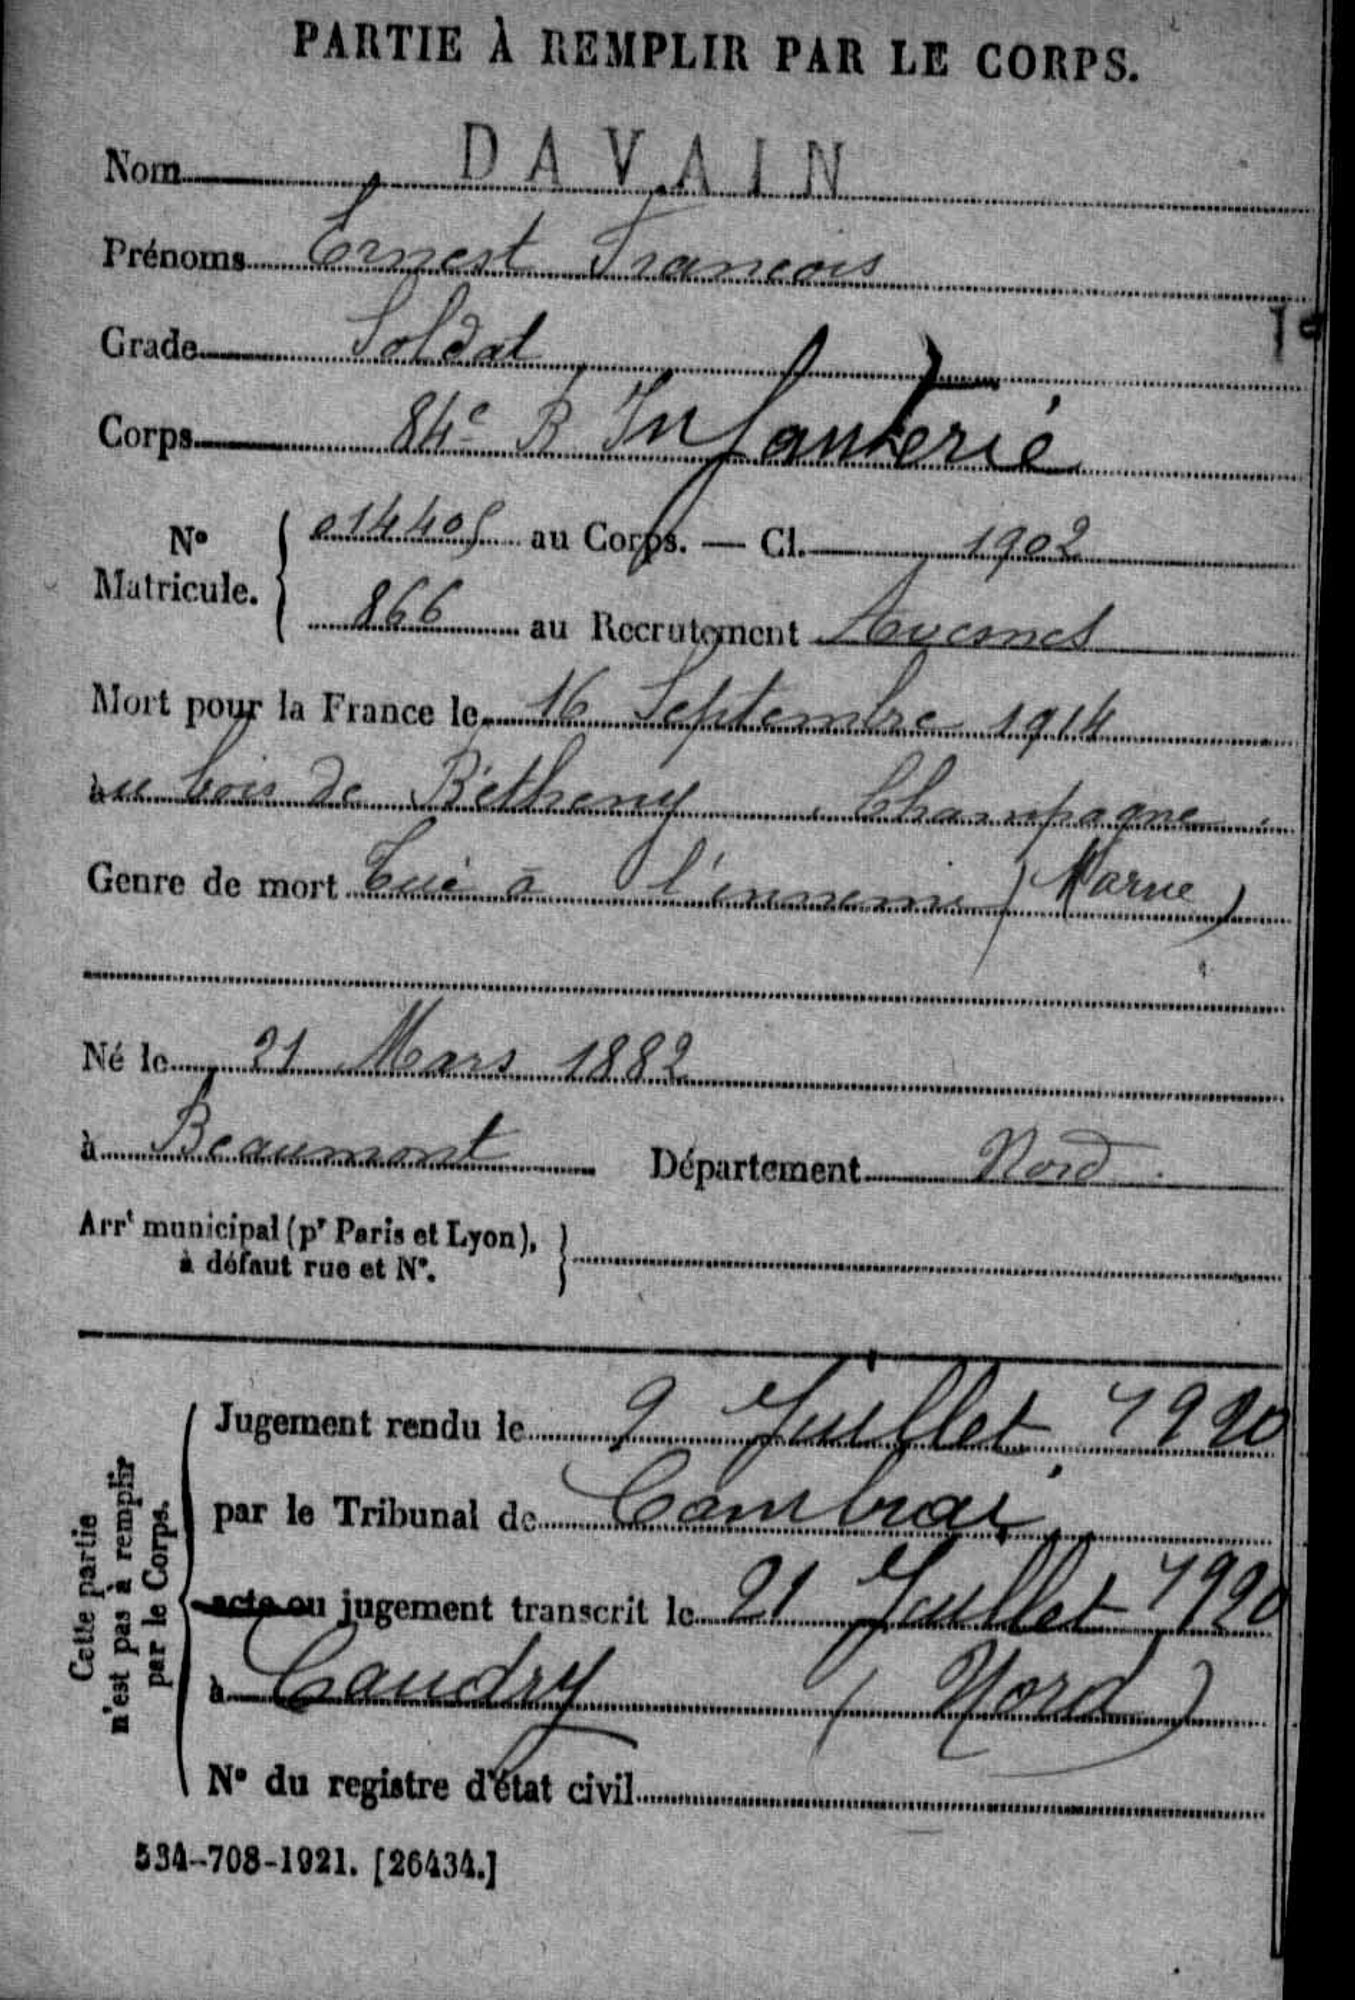 PARTIE À REMPLIR PAR LE CORPS.
Nom DAVAIN
Prénoms Ernest Francois
Grade Soldat
Corps 84e R Infanterie
No Matricule. { 014405 au Corps. — Cl. 1902
866 au Recrutement Avesnes
Mort pour la France le 16 Septembre 1914
au bois de Bétheny Champagne
Genre de mort Tué à l'ennemi (Marne)
Né le 21 Mars 1882
à Beaumont Département Nord
Arrt municipal (pr Paris et Lyon), à défaut rue et No. }
Cette partie n'est pas à remplir par le Corps.
Jugement rendu le 9 Juillet 1920
par le Tribunal de Cambrai
acte ou jugement transcrit le 21 Juillet 1920
à Caudry (Nord)
No du registre d'état civil
534-708-1921. [26434.]